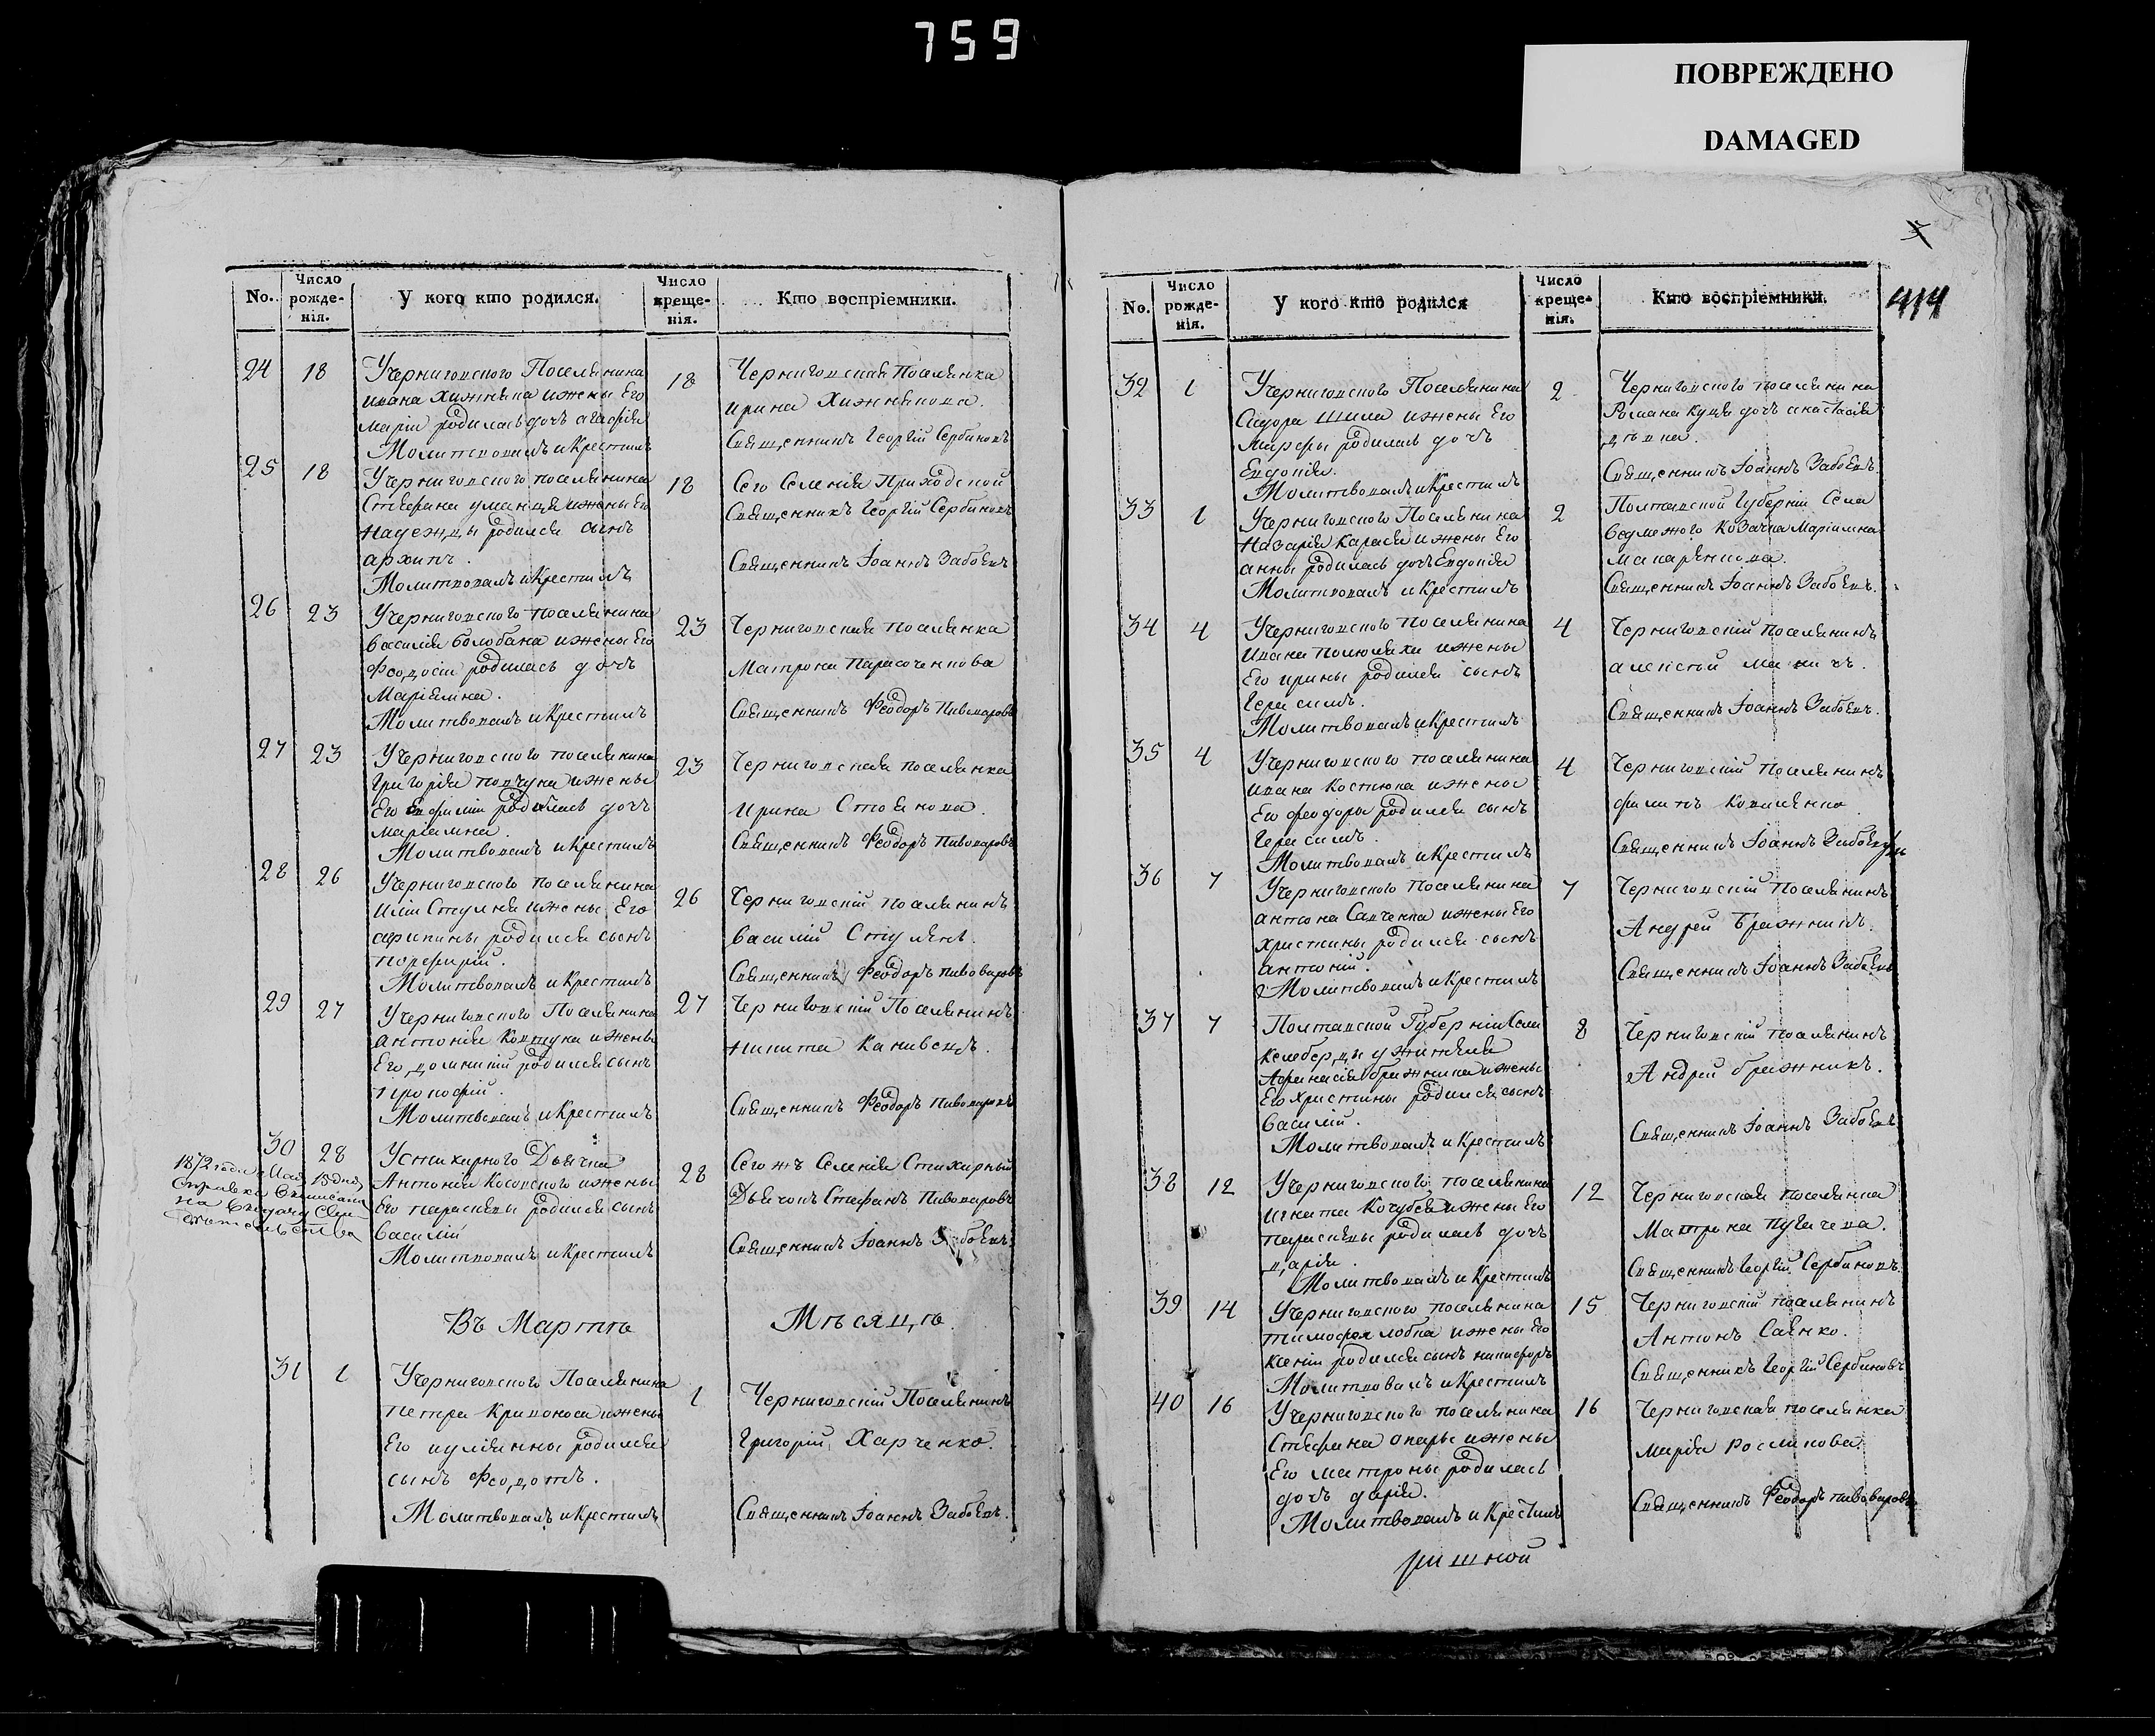 759
ПОВРЕЖДЕНО
DAMAGED
No.
Число рожде-нія.
У кого кто родился.
Число креще-нія.
Кто воспріемники.
24 18 18
У черниговского Поселянина
ивана Хижняка и жены Его
маріи родилась дочь агафія
Молитвовалъ и Крестилъ
Черниговская Поселянка
ирина Хижнякова.
Священникъ Георгій Сербиновъ
25 18 18
У черниговского поселянина
Стефана уманця и жены Его
Надежды родился сынъ
архипъ.
Молитвовалъ и Крестилъ
Сего Селенія Приходской
Священникъ Георгій Сербиновъ
Священникъ Іоаннъ Забоевъ
26 23 23
У черниговского поселянина
василія болобана и жены Его
Феодосіи родилась дочь
Маріямна.
Молитвовалъ и Крестилъ
Черниговская поселянка
Матрона Парасоченкова
Священникъ Феодоръ Пивоваровъ
27 23 23
У черниговского поселянина
григорія повчуна и жены
Его Евфиміи родилась дочь
маріамна.
Молитвовалъ и Крестилъ
Черниговская поселянка
ирина Стоянова.
Священникъ Феодоръ Пивоваровъ
28 26 26
У черниговского поселянина
иліи Стулня и жены Его
агрипины родился сынъ
порфирій.
Молитвовалъ и Крестилъ
Черниговскій поселянинъ
василій Стулень.
Священникъ Феодоръ Пивоваровъ
29 27 27
У черниговского Поселянина
антонія Ковтуна и жены
Его домникіи родился сынъ
прокофій.
Молитвовалъ и Крестилъ
Черниговскій Поселянинъ
никита Канивецъ.
Священникъ Феодоръ Пивоваровъ
30 28 28
1872 года Мая 13 дня
Справка Списана
на выдачу Сви-
детельства
У стихирного Дьячка
Антонія Косовского и жены
Его параскевы родился сынъ
василій
Молитвовалъ и Крестилъ
Сего жъ Селенія Стихирный
Дьячокъ Стефанъ Пивоваровъ
Священникъ Іоаннъ Забоевъ.
Въ Мартѣ Мѣсяцѣ.
31 1 1
У черниговского Поселянина
петра Кривоноса и жены
Его иуліянны родился
сынъ Феодотъ.
Молитвовалъ и Крестилъ
Черниговскій Поселянинъ
Григорій Харченко.
Священникъ Іоаннъ Забоевъ.
414
No.
Число рожде-нія.
У кого кто родился
Число креще-нія.
Кто воспріемники.
32 1 2
У черниговского Поселянина
Сидора Шила и жены Его
Марфы родилась дочь
Евдокія.
Молитвовалъ и Крестилъ
Черниговского поселянина
Романа куця дочь анастасія
дѣвка.
Священникъ Іоаннъ Забоевъ.
33 1 2
У черниговского Поселянина
Назарія Карася и жены Его
анны родилась дочь Евдокія
Молитвовалъ и Крестилъ
Полтавской Губерніи Села
ведмежого Козачка Маріямна
макаренкова.
Священникъ Іоаннъ Забоевъ.
34 4 4
У черниговского поселянина
ивана полюляхи и жены
Его ирины родился сынъ
Герасимъ.
Молитвовалъ и Крестилъ
Черниговскій поселянинъ
алексей маничъ.
Священникъ Іоаннъ Забоевъ.
35 4 4
У черниговского поселянина
ивана Костюка и жены
Его феодоры родился сынъ
Герасимъ.
Молитвовалъ и Крестилъ
Черниговскій поселянинъ
филипъ Коваленко
Священникъ Іоаннъ Забоевъ
36 7 7
У черниговского поселянина
антона Савченка и жены Его
христины родился сынъ
антоній.
Молитвовалъ и Крестилъ
Черниговскій поселянинъ
Андрей Бражникъ.
Священникъ Іоаннъ Забоевъ
37 7 8
Полтавской Губерніи Села
келеберды у жителя
Афанасія бражника и жены
Его христины родился сынъ
василій.
Молитвовалъ и Крестилъ
Черниговскій поселянинъ
Андрей бражникъ.
Священникъ Іоаннъ Забоевъ
38 12 12
У черниговского поселянина
игната Кочубея и жены Его
параскевы родилась дочь
дарія.
Молитвовалъ и Крестилъ
Черниговская поселянка
Матрона пугачева.
Священникъ Георгій Сербиновъ.
39 14 15
У черниговского поселянина
тимофея лобка и жены Его
Ксеніи родился сынъ никифоръ
Молитвовалъ и Крестилъ
Черниговскій поселянинъ
Антонъ Саенко.
Священникъ Георгій Сербиновъ
40 16 16
У черниговского поселянина
Стефана опары и жены
Его матроны родилась
дочь дарія.
Молитвовалъ и Крестилъ
Черниговская поселянка
марія рослякова.
Священникъ Феодоръ пивоваровъ